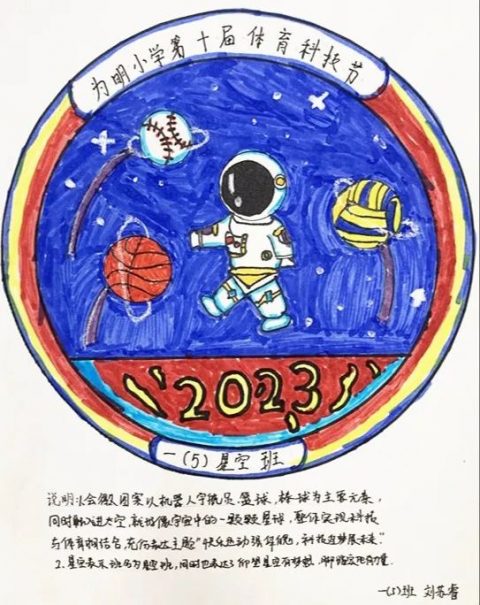 为明小学第十届体育科技节
2023
一(5)星空班
说明:1.会徽图案以机器人宇航员,篮球,棒球为主要元素,
同时融入进太空,就好像宇宙中的一颗颗星球,整体实现科技
与体育相结合,充分表达主题"快乐运动强体魄,科技追梦展未来."
2.星空表示班名为星空班,同时也表达了仰望星空有梦想,脚踏实地有力量.
一(5)班 刘苏睿